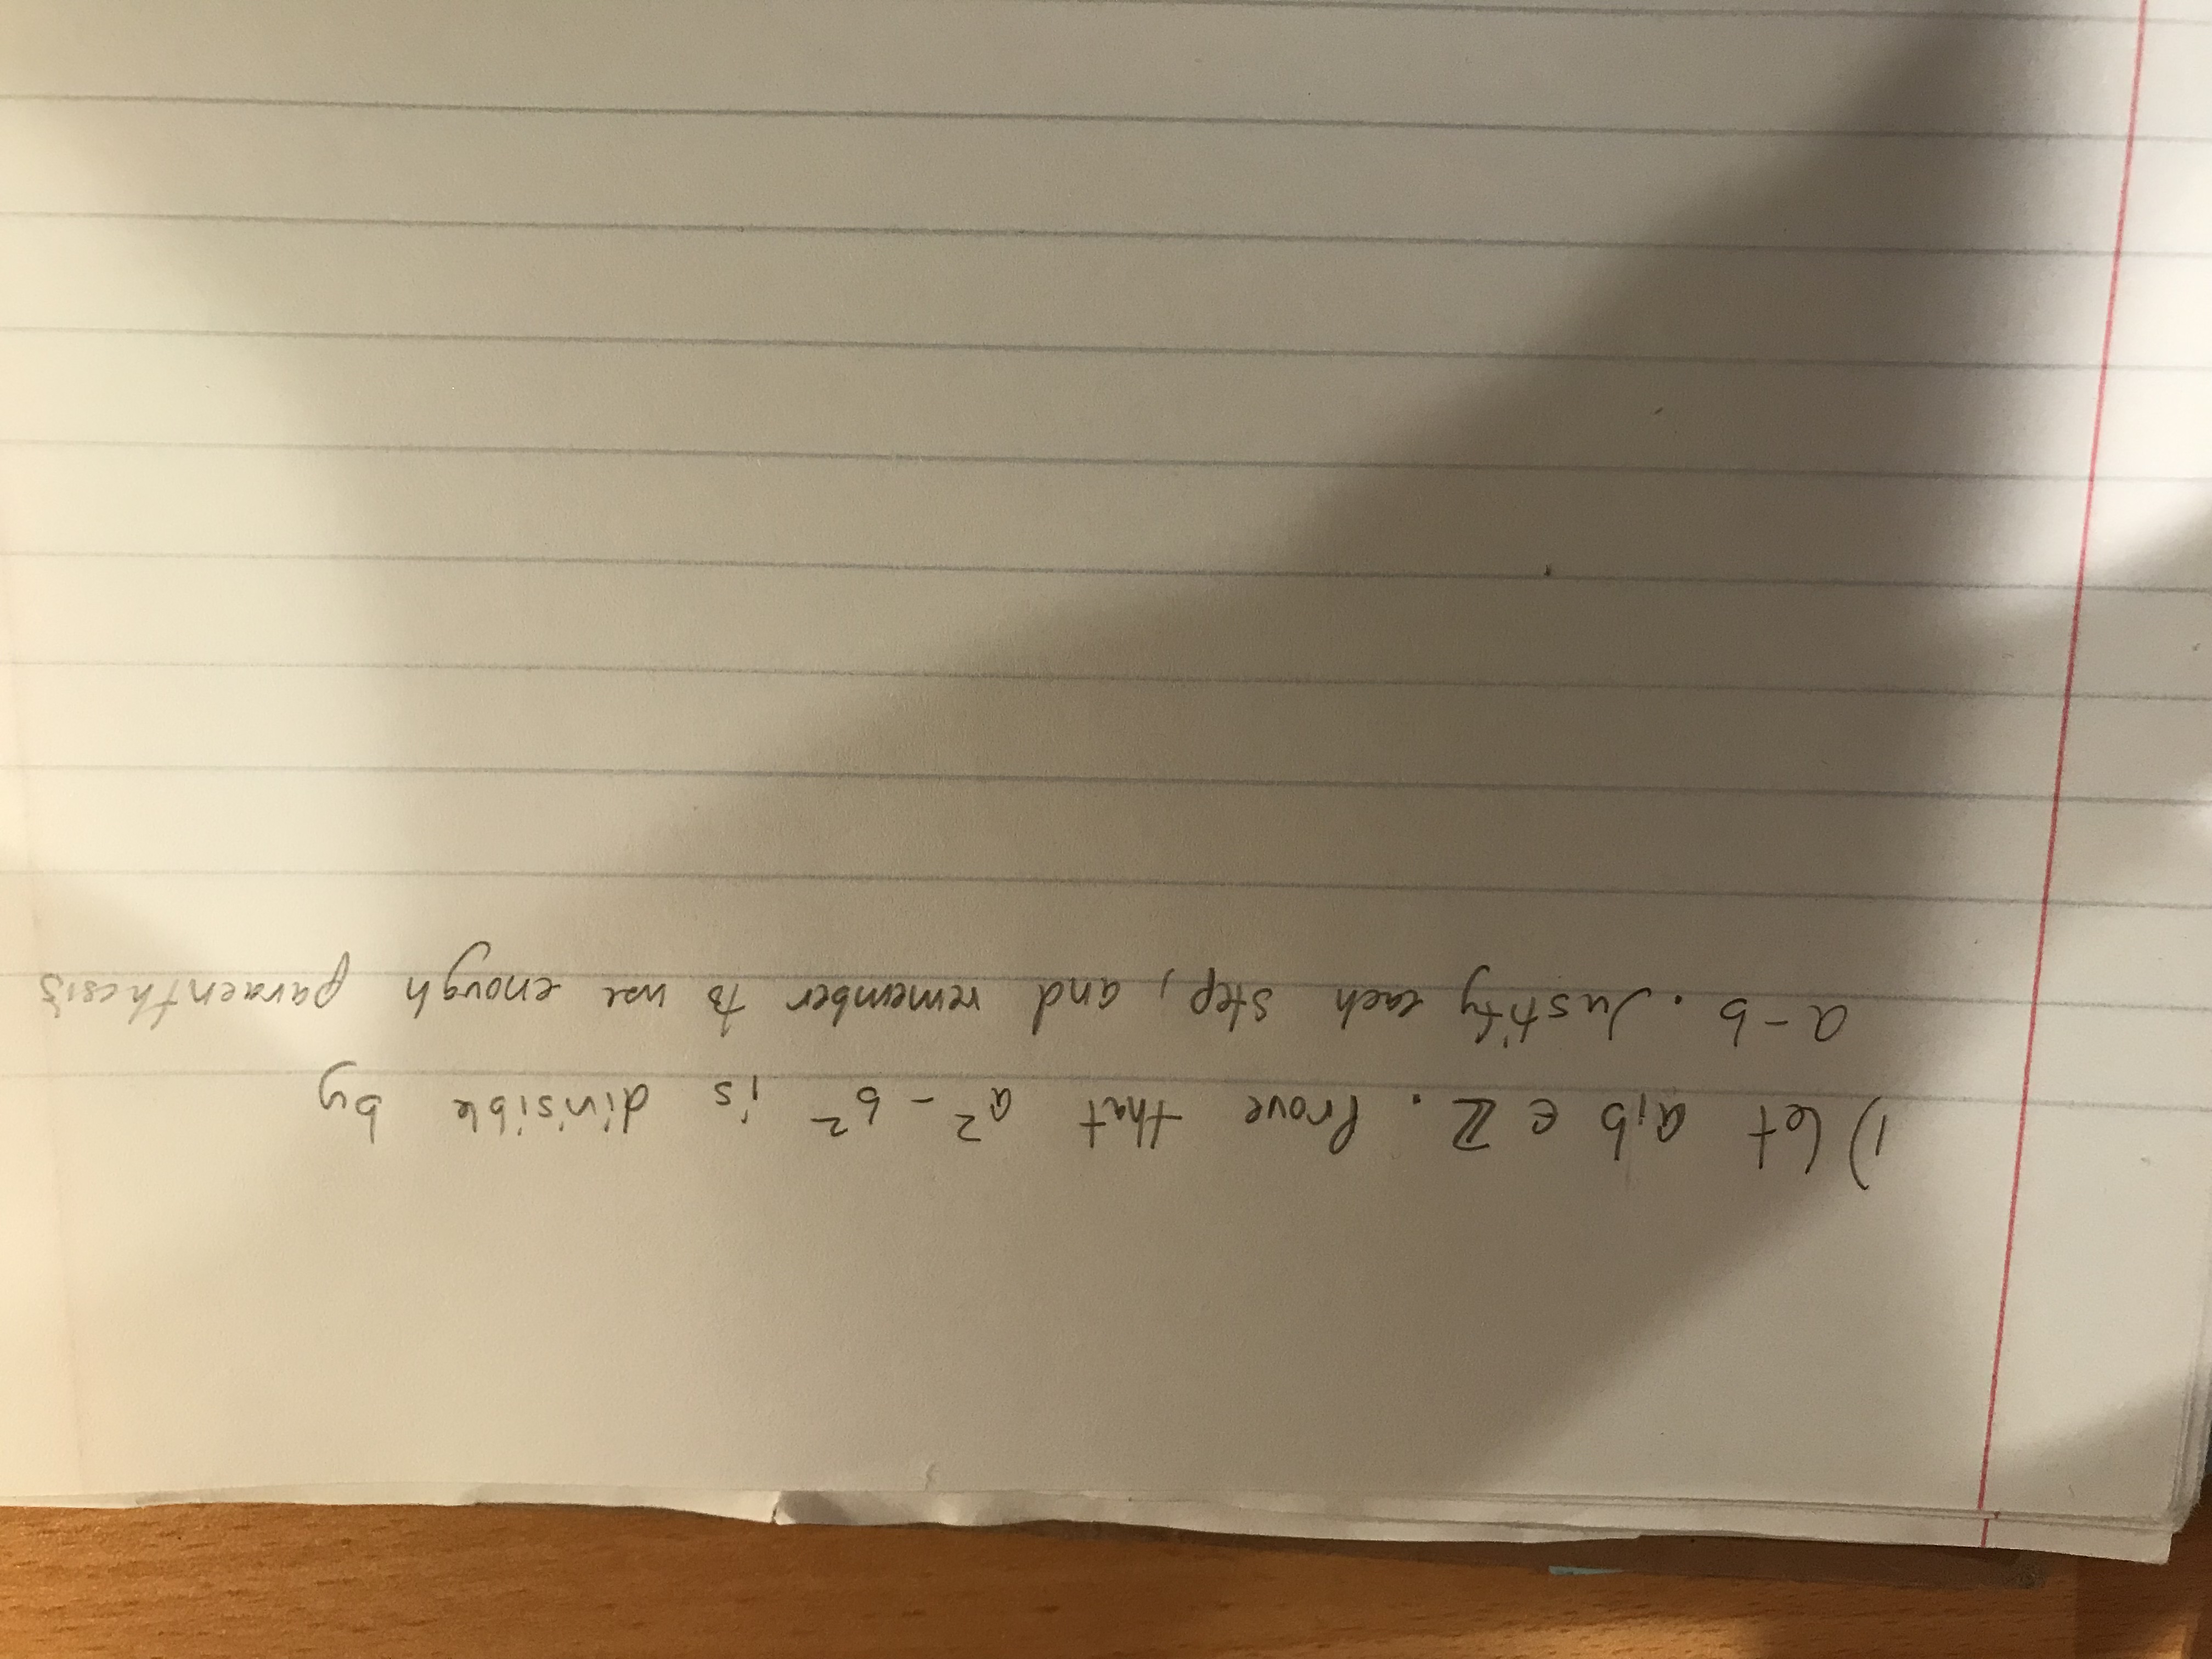 1) Let a,b ∈ ℤ. Prove that a² - b² is divisible by
a-b. Justify each step, and remember to use enough paraenthesis